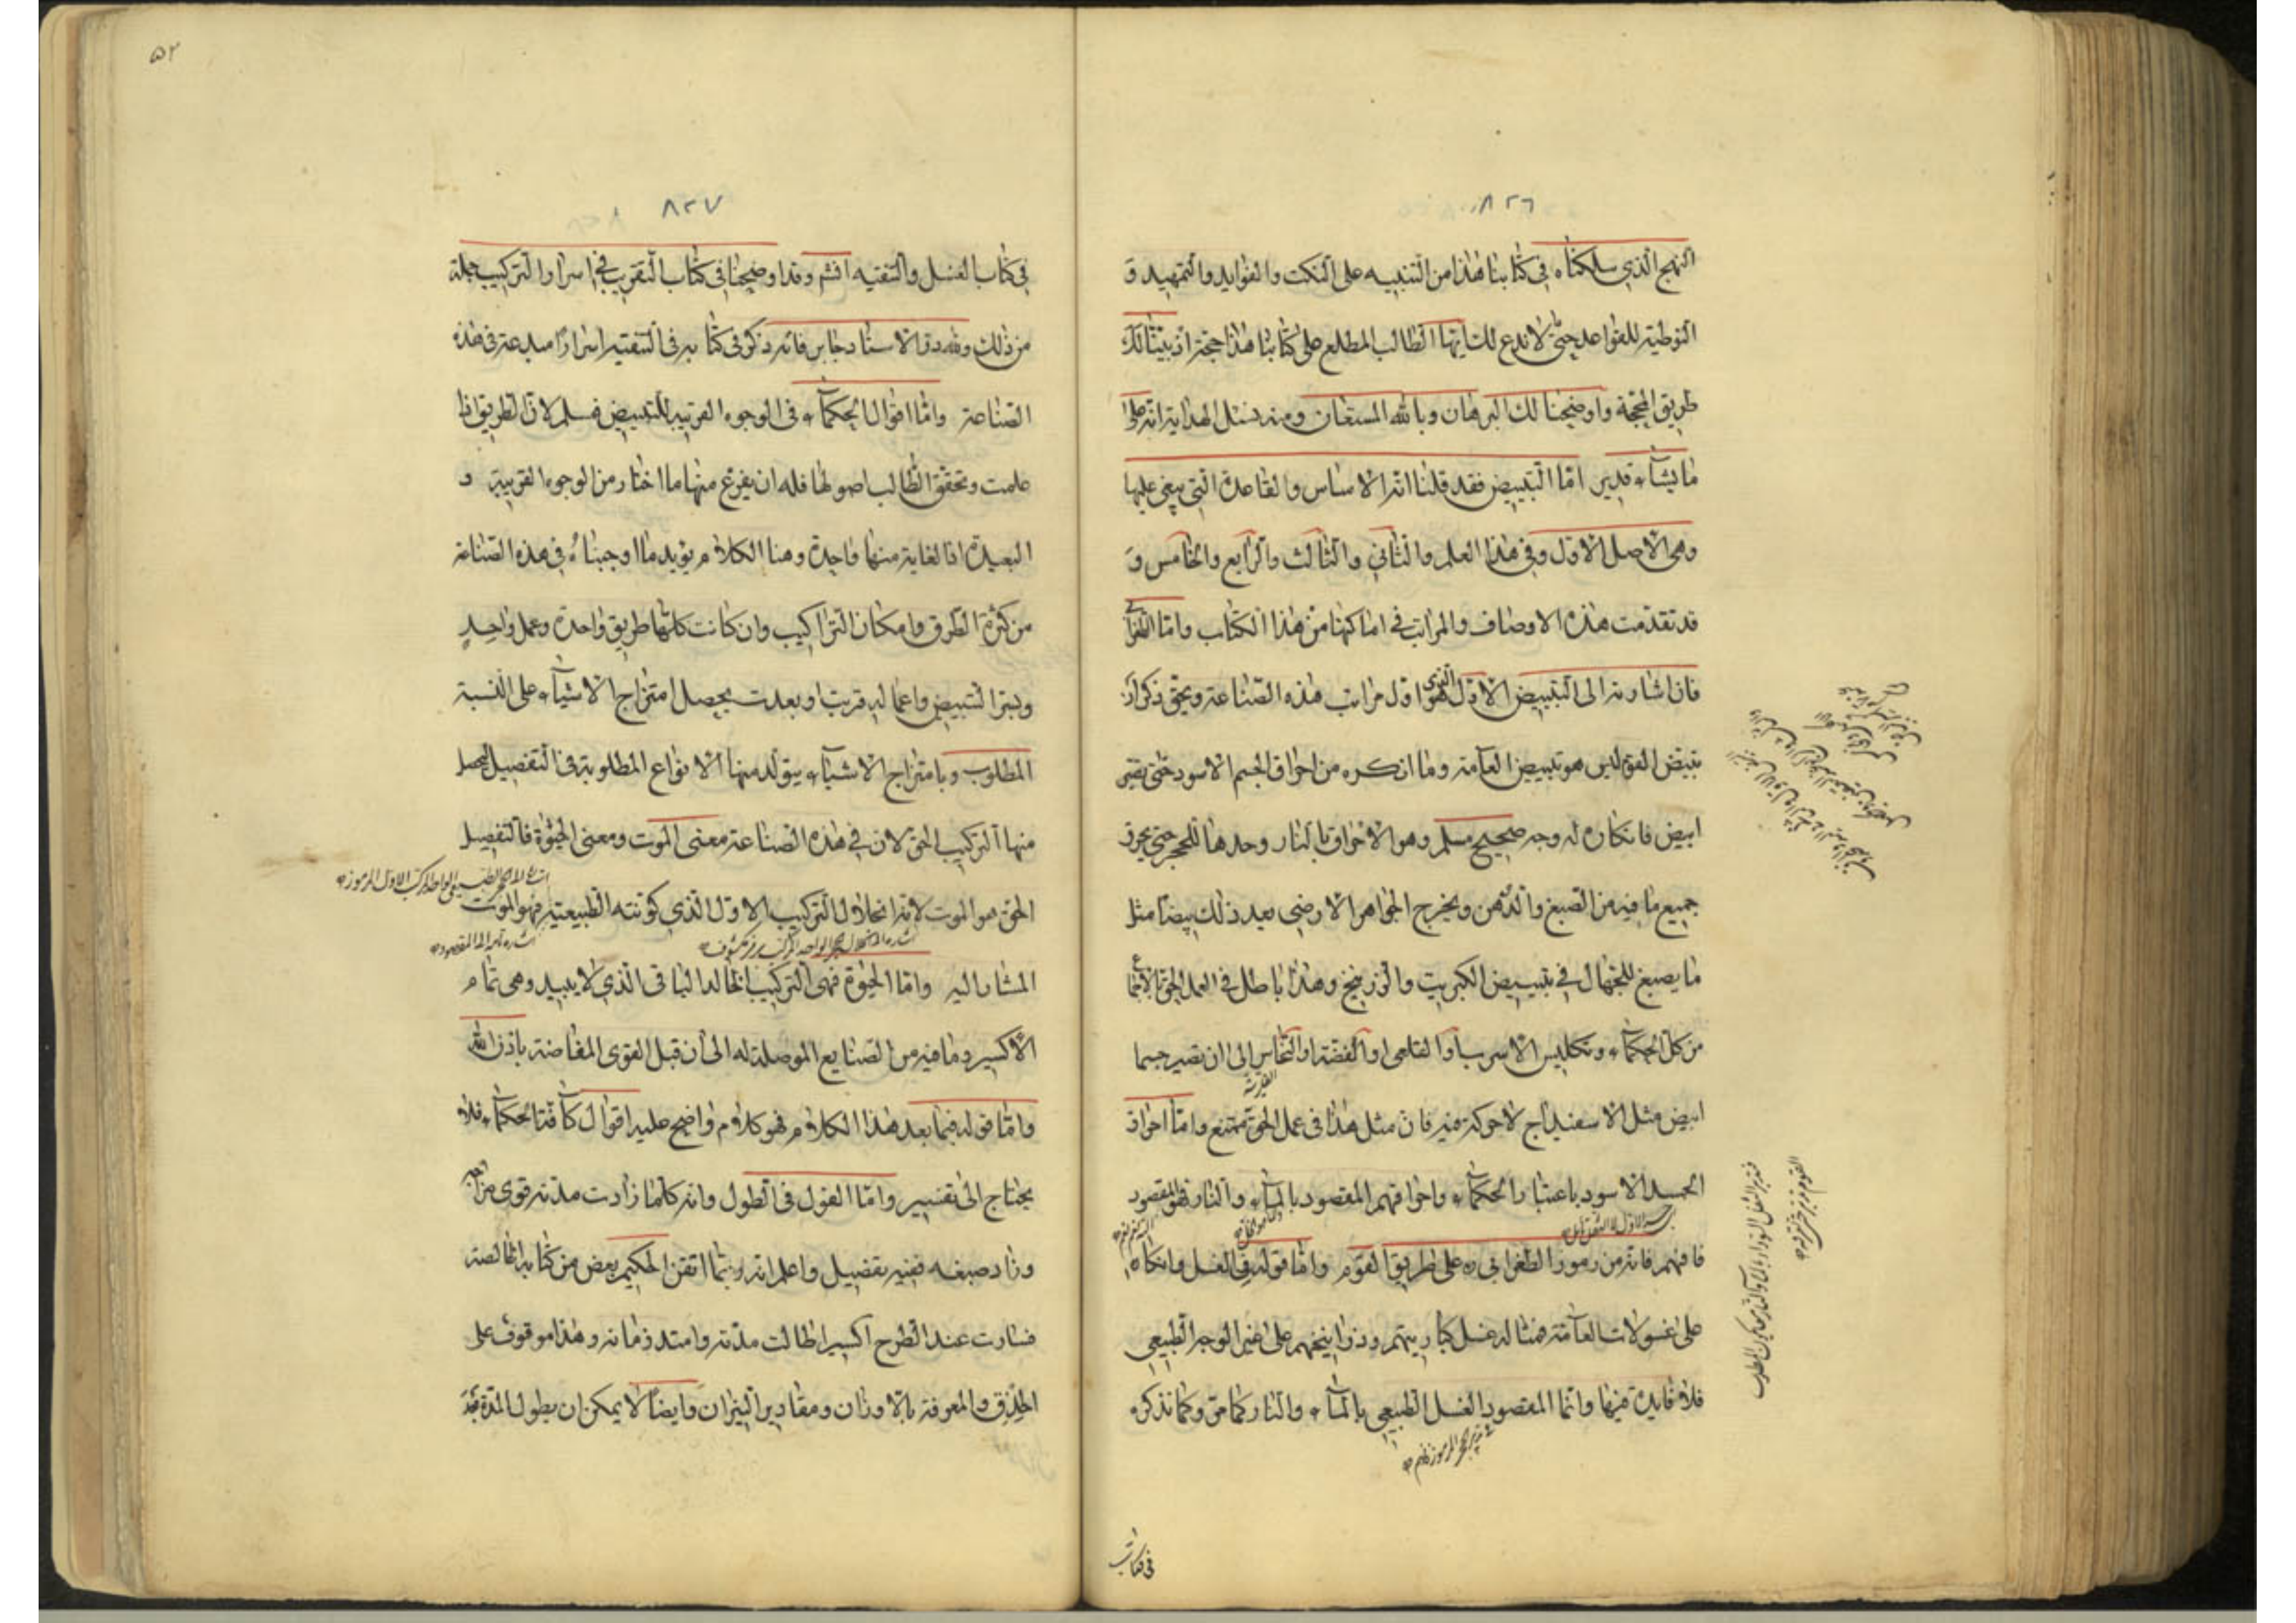 ٨٢٦
النهج الذي سلكناه في كتابنا هذا من التنبيه على النكت والفوايد والتمهيد و
التوطية للقواعد حتى لا ندع لك ايها الطالب المطلع على كتابنا هذا حجة اذ بيّنا لك
طريق المحجة واوضحنا لك البرهان وبالله المستعان ومنه نسئل الهداية انه على
ما يشآء قدير اما التبييض فقد قلنا انه الاساس والقاعدة التي يبنى عليها
وهي الاصل الاول وفي هذا العلم والثاني والثالث والرابع والخامس و
قد تقدمت هذه الاوصاف والمراتب في اماكنها من هذا الكتاب واما الطغرائي
فان اشارته الى التبييض الاول الذي هو اول مراتب هذه الصناعة ويحق ذكر ان
تبيض القوم ليس هو تبييض العامة وما انكره من احراق الجسم الاسود حتى يصير
ابيض فانكاره له وجه صحيح مسلم وهو الاحراق بالنار وحدها للحجر حتى يحرق
جميع ما فيه من الصبغ والدهن ويخرج الجواهر الارضي بعد ذلك بيضا مثل
ما يصنع للجهال في تبييض الكبريت والزرنيخ وهذا باطل في العمل الحق بالاجماع
من كل الحكمآء وتكليس الاسرب او القلعى او الفضة او النحاس الى ان تصير جسما
ابيض مثل الاسفيداج لا حركة فيه فان مثل هذا في عمل الحق ممتنع واما احراق
الجسد الاسود باعتبار الحكمآء واحراقهم المقصود بالمآء والنار فهو المقصود
فافهم فانه من رموز الطغرائي ره على طريق القوم واما قوله في الغسل وانكاره
على غسولات العامة فمثاله غسل كباريتهم وزرانيخهم على غير الوجه الطبيعي
فلا فايدة فيها وانما المقصود الغسل الطبيعي بالمآء والنار كما مر وكما نذكره
في كتاب
٥٢
٨٢٧
في كتاب الغسل والتنقيه افهم وقد اوضحنا في كتاب التقريب في اسرار التركيب جملة
من ذلك ولله در الاستاد جابر فانه ذكر في كتابه في التنقيه اسرارا مبدعة في هذه
الصناعة واما اقوال الحكمآء في الوجوه القريبة للتبييض فمسلم لان الطريق اذا
علمت وتحقق الطالب اصولها فله ان يفرع منها ما اختار من الوجوه القريبة و
البعيدة اذ الغاية منها واحدة وهنا الكلام يؤيد ما اوجبناه في هذه الصناعة
من كثرة الطرق وامكان التراكيب وان كانت كلها طريق واحدة وعمل واحد
وبسر التبييض واعماله قربت او بعدت يحصل امتزاج الاشيآء على النسبة
المطلوب وبامتزاج الاشيآء يتولد منها الانواع المطلوبة في التفصيل ليحصل
منها التركيب الحق لان في هذه الصناعة معنى الموت ومعنى الحيوة فالتفصيل
الحق هو الموت لانه انحلال التركيب الاول الذي كونته الطبيعية فهو الموت
المشار اليه واما الحيوة فهي التركيب الخالد الباقي الذي لا يبيد وهي تمام
الاكسير وما فيه من الصنايع الموصلة له الى ان قبل القوى المفاضة باذن الله
واما قوله فيما بعد هذا الكلام فهو كلام واضح عليه اقوال كآفة الحكمآء فلا
يحتاج الى تفسير واما القول في الطول وانه كلما زادت مدته قوى مزاجه
وزاد صبغه ففيه تفصيل واعلم انه ربما اتقن الحكيم بعض من كتابه الخالصة
فسارت عند الطرح اكسيرا طالت مدته وامتد زمانه وهذا موقوف على
الحذق والمعرفة بالاوزان ومقادير النيران وايضا لا يمكن ان يطول المدة